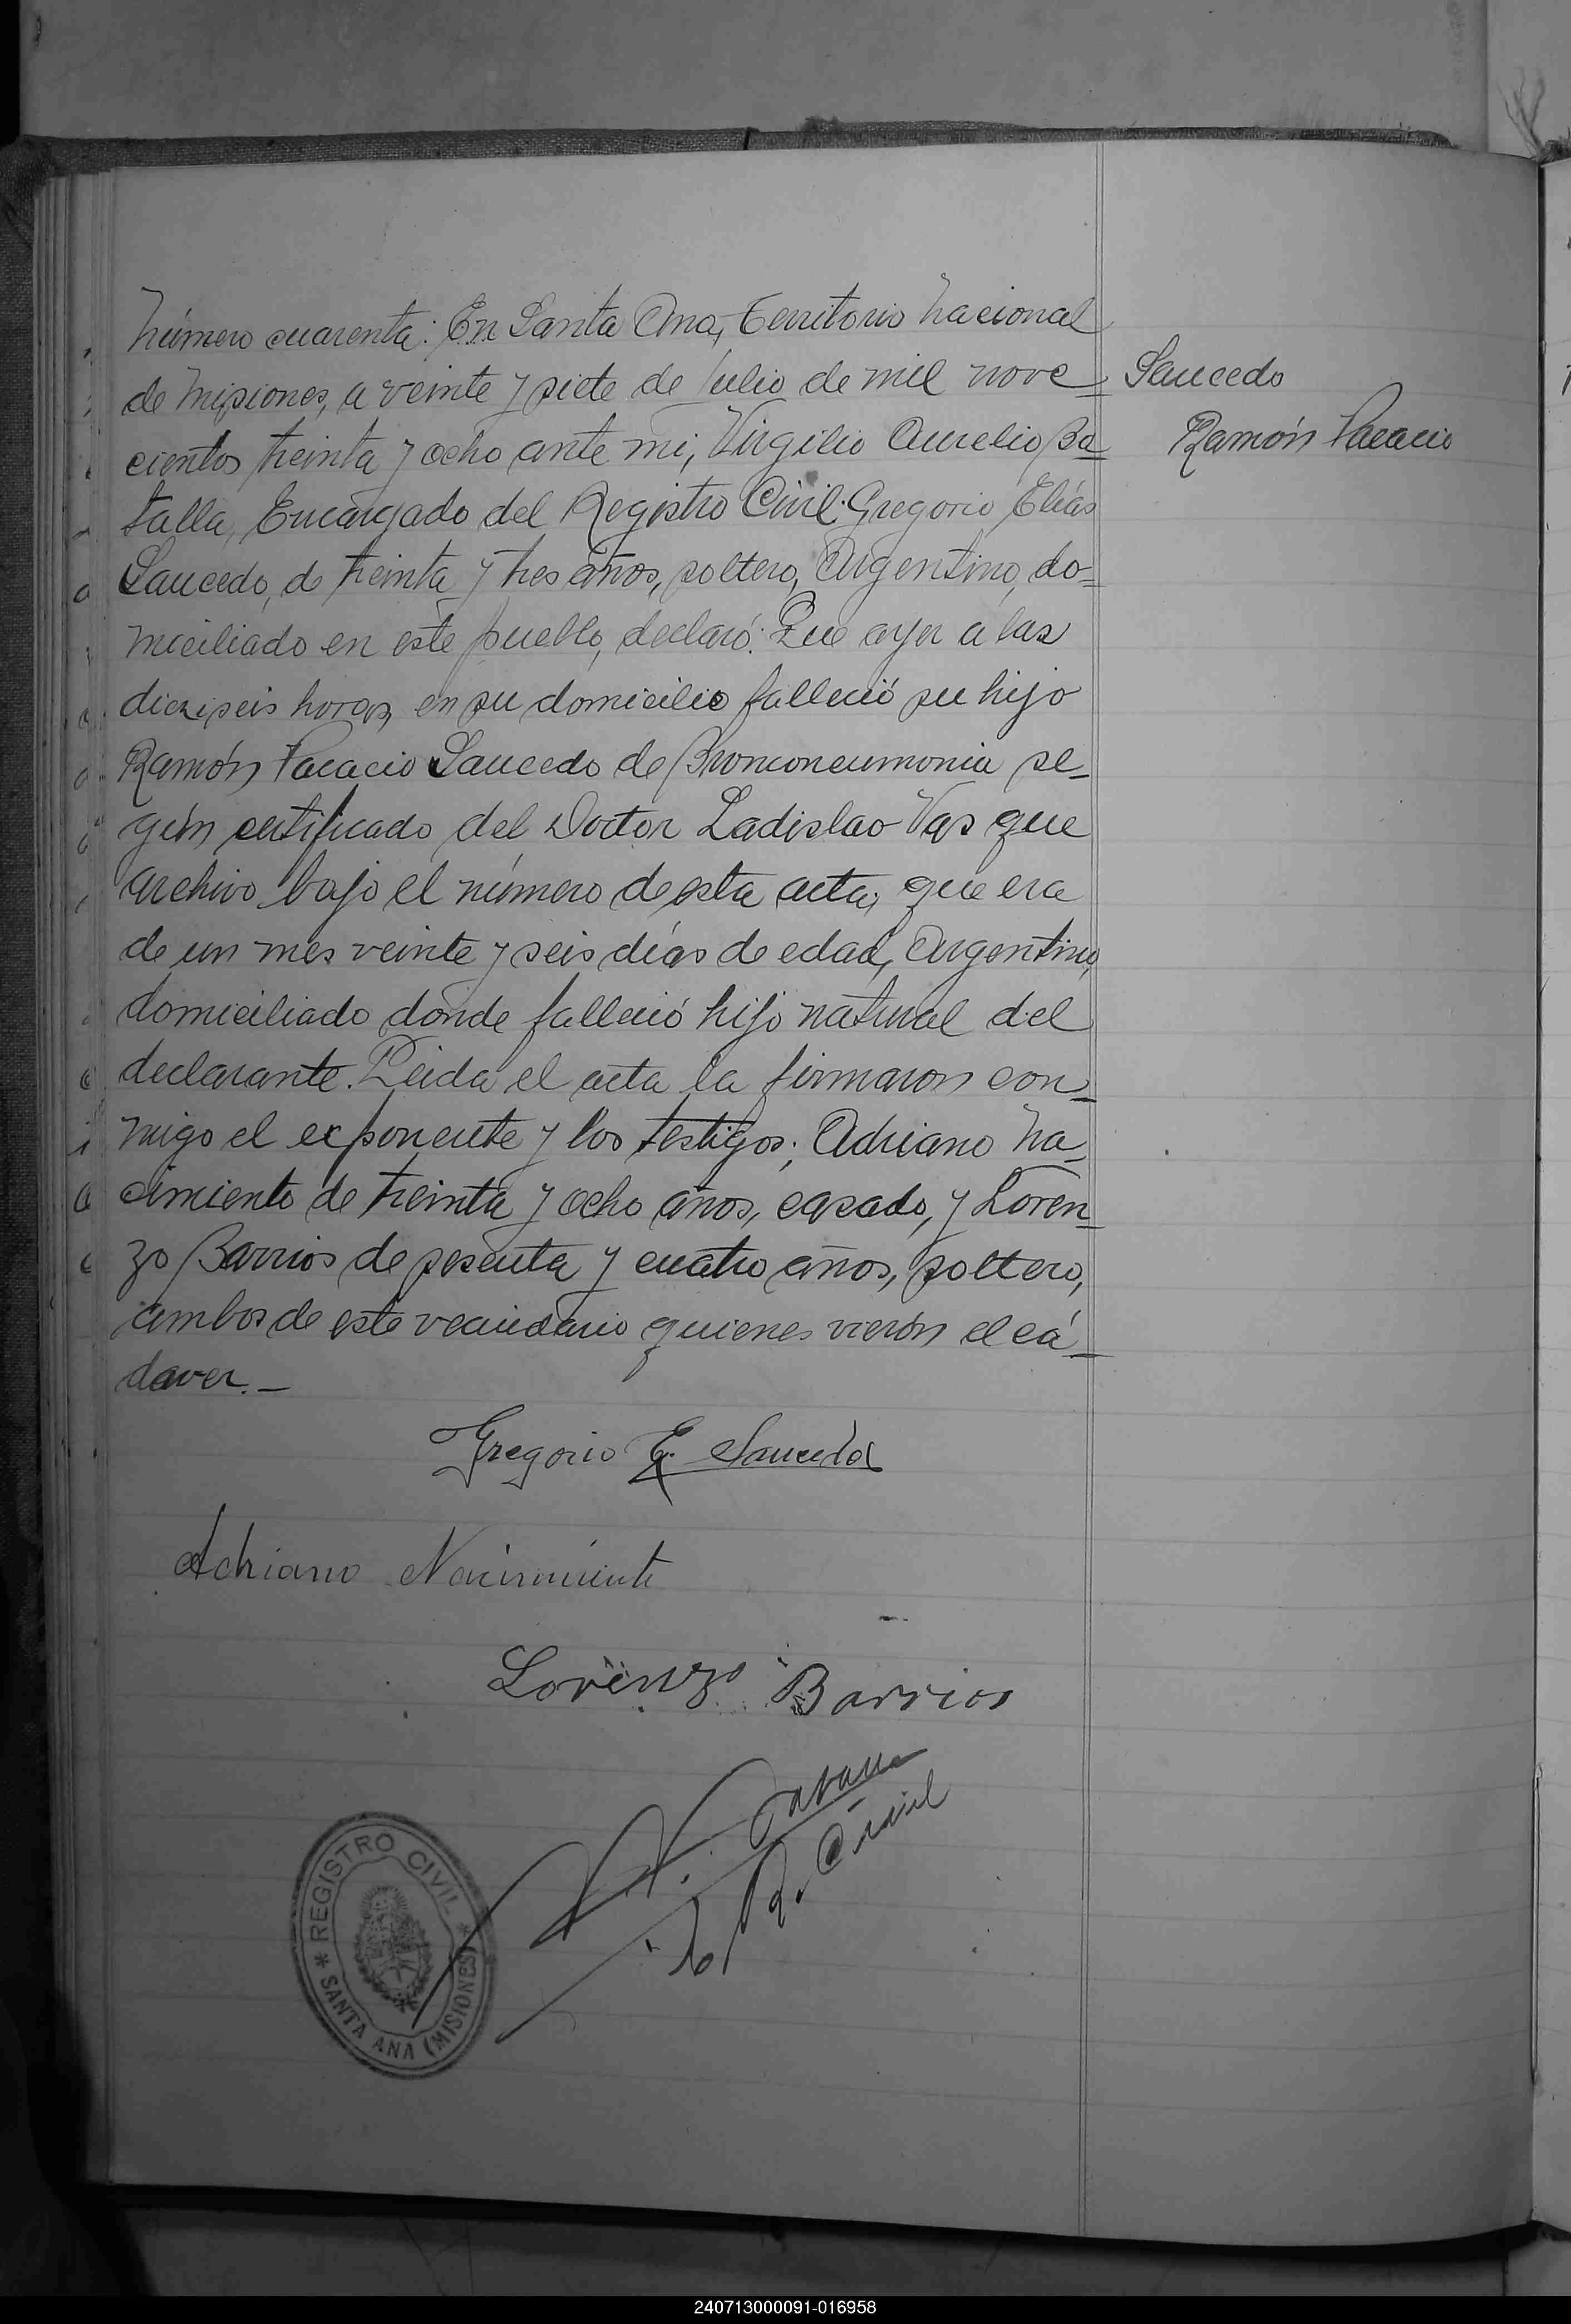 Número cuarenta: En Santa Ana, Territorio Nacional
de Misiones, a veinte y siete de Julio de mil nove=
cientos treinta y ocho ante mi, Virgilio Aurelio Ba=
talla, Encargado del Registro Civil: Gregorio Elías
Saucedo, de treinta y tres años, soltero, Argentino, do=
miciliado en este pueblo, declaró: Que ayer a las
dieziseis horas, en su domicilio falleció su hijo
Ramón Pacacio Saucedo de Bronconeumonia se=
gún certificado del Doctor Ladislao Vas que
archivo bajo el número de esta acta; que era
de un mes veinte y seis días de edad, Argentino,
domiciliado donde falleció hijo natural del
declarante. Leida el acta la firmaron con=
migo el exponente y los testigos; Adriano Na=
cimiento de treinta y ocho años, casado, y Loren=
zo Barrios de sesenta y cuatro años, soltero,
ambos de este vecindario quienes vieron el cá=
daver.—
Saucedo
Ramón Pacacio
Gregorio E. Saucedo
Adriano Nacimiento
Lorenzo Barrios
R. Civil
* REGISTRO CIVIL * SANTA ANA (MISIONES)
240713000091-016958